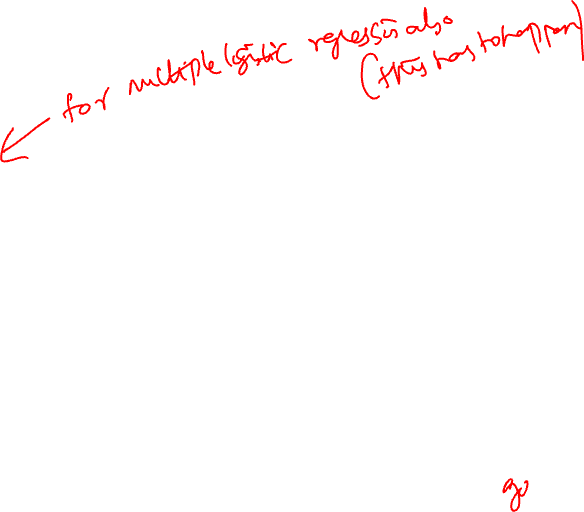 for multiple logistic regression also
(this has to happen)
go